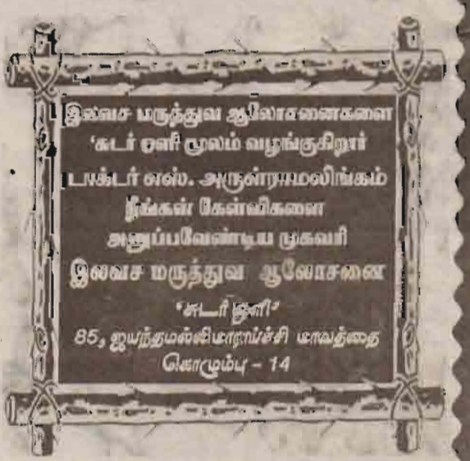 இலவச மருத்துவ ஆலோசனைகளை
‘சுடர் ஒளி மூலம் வழங்குகிறார்
டாக்டர் எஸ். அருள்ராமலிங்கம்
நீங்கள் கேள்விகளை
அனுப்பவேண்டிய முகவரி
இலவச மருத்துவ ஆலோசனை
‘சுடர் ஒளி’
85, ஜயந்தமல்லிமாராய்ச்சி மாவத்தை
கொழும்பு - 14